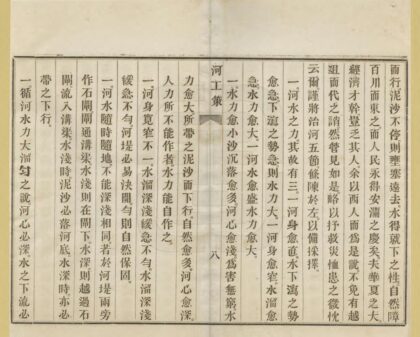 而行泥沙不停則壅塞邊去水得就下之性自然障
百用而東之而人民永得安瀾之慶矣夫華夏之大
經濟才幹豈乏其人余以西人而爲是說不免有越
俎而代之誚然管見如是略以抒救災恤患之微忱
云爾謹將治河五箇條陳於左以備採擇
一河水之力其故有三一河身愈直水下瀉之勢
愈急下瀉之勢急則水力大一河身愈窄水溜愈
急水力愈大一河水愈盛水力愈大
一水力愈小沙沉落愈多河心愈淺爲害無窮水
河工策
八
力愈大所帶之泥沙而下行自然愈多河心愈深
人力所不能作者水力能自作之
一河身寬窄不一水溜深淺緩急不勻水溜深淺
緩急不勻河堤必易決開勻則自然保固
一河水隨時隨地不能深淺相同者於河堤兩旁
作石閘閘通溝渠水淺時則在閘下水深則越過石
閘流入溝渠水淺時泥沙必落河底水深時亦必
帶之下行
一循河水力大溜勻之說河心必深水之下流必